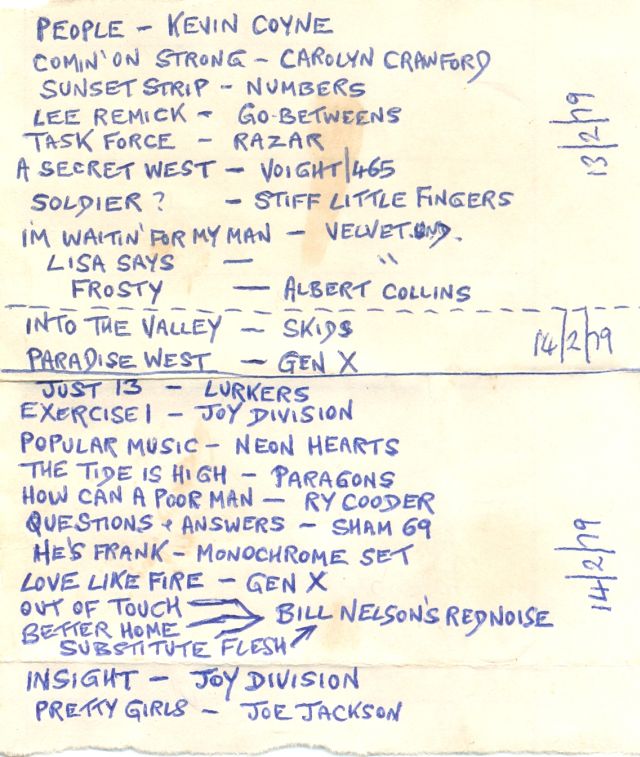 PEOPLE - KEVIN COYNE
COMIN' ON STRONG - CAROLYN CRAWFORD
SUNSET STRIP - NUMBERS
LEE REMICK - GO-BETWEENS
TASK FORCE - RAZAR
A SECRET WEST - VOIGHT/465
SOLDIER? - STIFF LITTLE FINGERS
I'M WAITIN' FOR MY MAN - VELVET.UND.
LISA SAYS — "
FROSTY — ALBERT COLLINS
13/2/79
INTO THE VALLEY - SKIDS
PARADISE WEST - GEN X
14/2/79
JUST 13 - LURKERS
EXERCISE 1 - JOY DIVISION
POPULAR MUSIC - NEON HEARTS
THE TIDE IS HIGH - PARAGONS
HOW CAN A POOR MAN - RY COODER
QUESTIONS + ANSWERS - SHAM 69
HE'S FRANK - MONOCHROME SET
LOVE LIKE FIRE - GEN X
OUT OF TOUCH
BETTER HOME
SUBSTITUTE FLESH
BILL NELSON'S REDNOISE
INSIGHT - JOY DIVISION
PRETTY GIRLS - JOE JACKSON
14/2/79